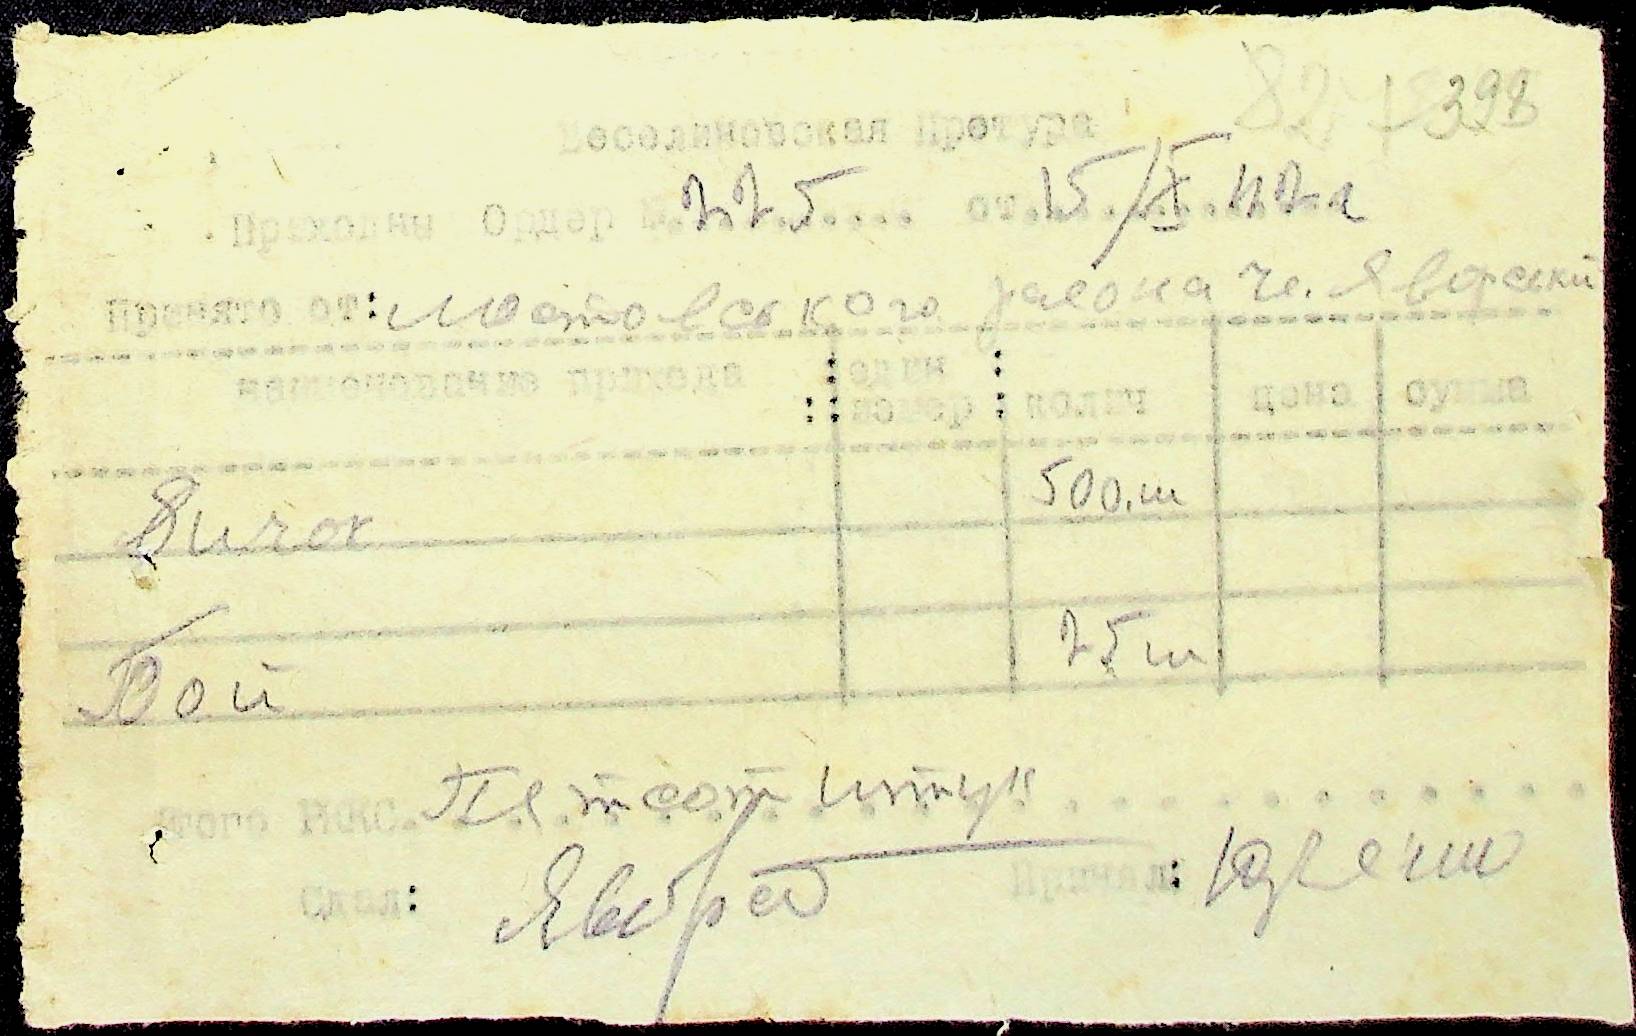 398
Веселиновская Претура
Приходный Ордер № 225 от 15/X 42 г
Принято от: Мостовского района Яворский
наименование прихода един измер колич цена сумма
500.ш
Бой 25 ш
Итого ИКС. Пятсот штук
Сдал: Принял: